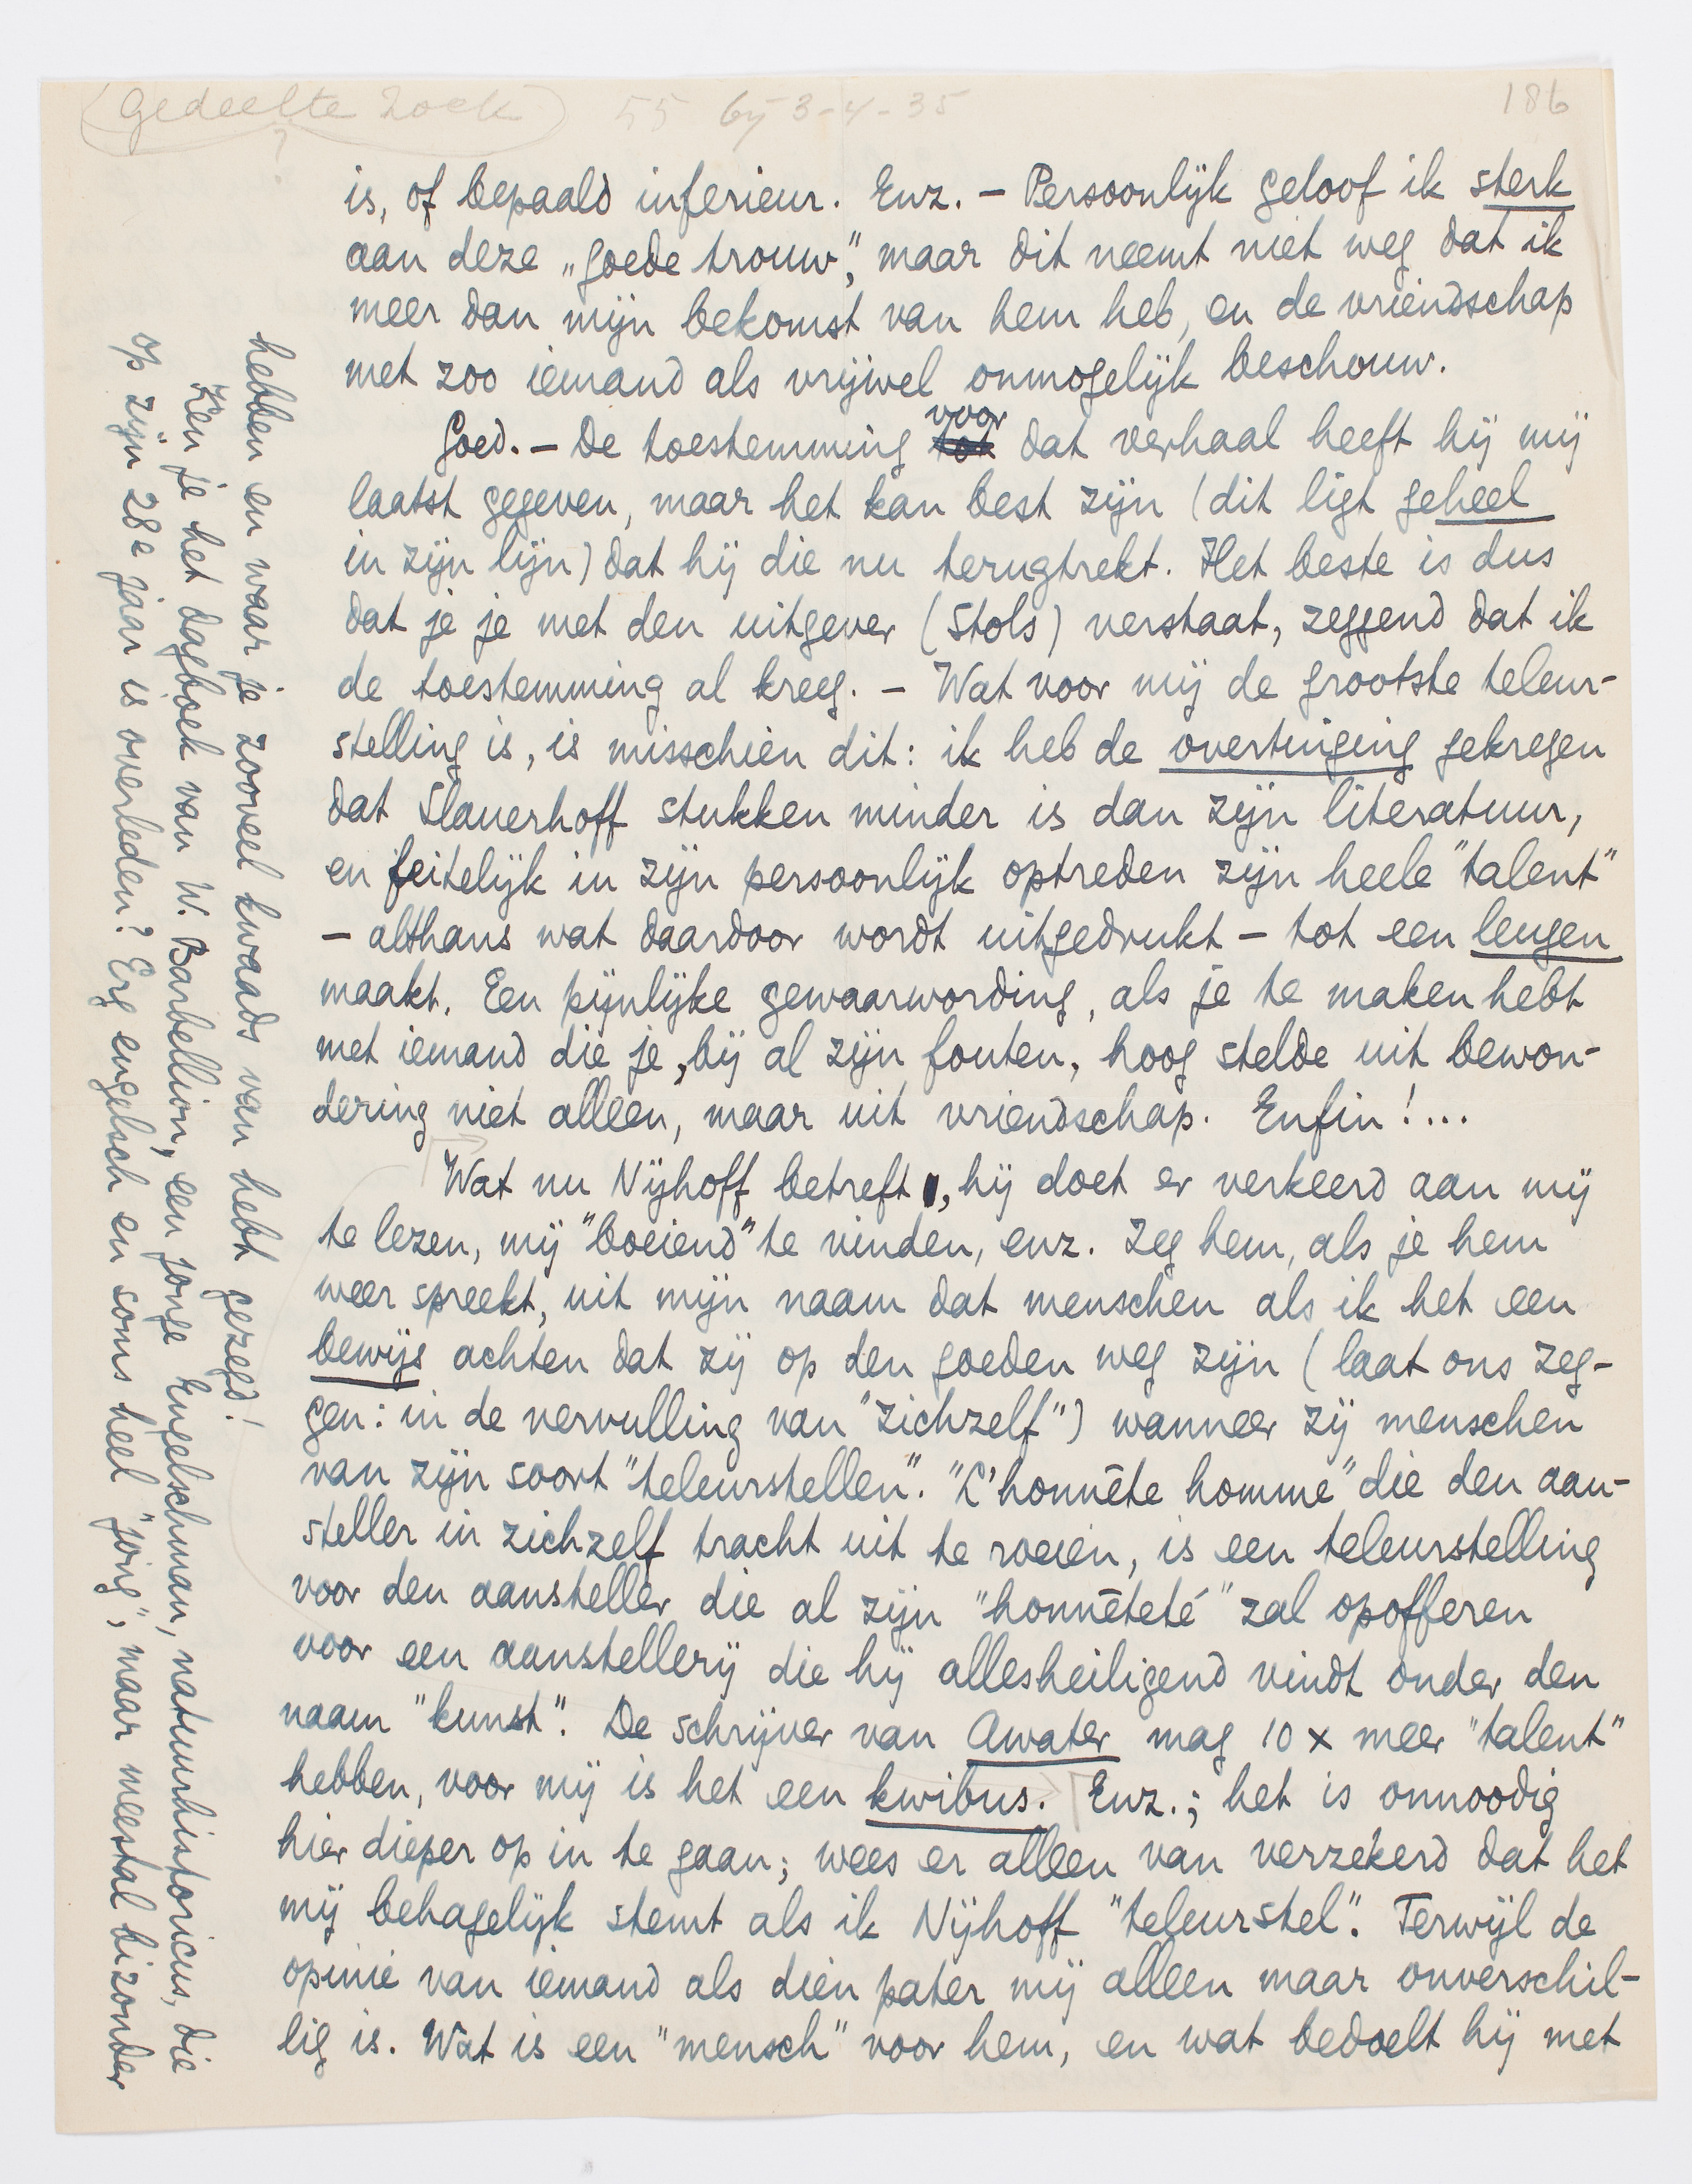 (gedeelte zoek) 55 bij 3-4-35 186
?
is, of bepaald inferieur. Enz. – Persoonlijk geloof ik sterk
aan deze „goede trouw", maar dit neemt niet weg dat ik
meer dan mijn bekomst van hem heb, en de vriendschap
met zoo iemand als vrijwel onmogelijk beschouw.
Goed. – De toestemming tot voor dat verhaal heeft hij mij
laatst gegeven, maar het kan best zijn (dit ligt geheel
in zijn lijn) dat hij die nu terugtrekt. Het beste is dus
dat je je met den uitgever (Stols) verstaat, zeggend dat ik
de toestemming al kreeg. – Wat voor mij de grootste teleur-
stelling is, is misschien dit: ik heb de overtuiging gekregen
dat Slauerhoff stukken minder is dan zijn literatuur,
en feitelijk in zijn persoonlijk optreden zijn heele "talent"
– althans wat daardoor wordt uitgedrukt – tot een leugen
maakt. Een pijnlijke gewaarwording, als je te maken hebt
met iemand die je, bij al zijn fouten, hoog stelde uit bewon-
dering niet alleen, maar uit vriendschap. Enfin!...
Wat nu Nijhoff betreft, hij doet er verkeerd aan mij
te lezen, mij "boeiend" te vinden, enz. Zeg hem, als je hem
weer spreekt, uit mijn naam dat menschen als ik het een
bewijs achten dat zij op den goeden weg zijn (laat ons zeg-
gen: in de vervulling van "zichzelf") wanneer zij menschen
van zijn soort "teleurstellen". "L'honnête homme" die den aan-
steller in zichzelf tracht uit te roeien, is een teleurstelling
voor den aansteller die al zijn "honnêteté" zal opofferen
voor een aanstellerij die hij allesheiligend vindt onder den
naam "kunst". De schrijver van Awater mag 10 x meer "talent"
hebben, voor mij is het een kwibus. Enz.; het is onnoodig
hier dieper op in te gaan; wees er alleen van verzekerd dat het
mij behagelijk stemt als ik Nijhoff "teleurstel". Terwijl de
opinie van iemand als dien pater mij alleen maar onverschil-
lig is. Wat is een "mensch" voor hem, en wat bedoelt hij met
hebben en waar je zooveel kwaads van hebt gezegd!
Ken je het dagboek van W. Barbellion, een jonge Engelschman, natuurhistoricus, die
op zijn 28e jaar is overleden? Erg engelsch en soms heel "jong", maar meestal bizonder